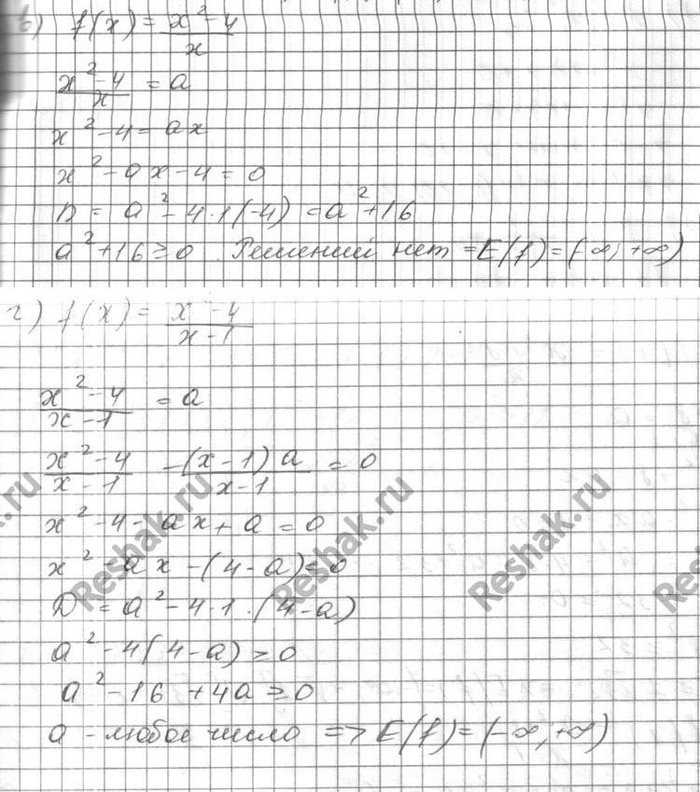 в) f(x) = x²-4 / x
x²-4 / x = a
x²-4 = ax
x²-ax-4=0
D = a²-4·1(-4) = a²+16
a²+16≥0. Решений нет =E(f)=(-∞; +∞)
г) f(x) = x-4 / x-1
x²-4 / x-1 = a
x²-4 / x-1 - (x-1)a / x-1 = 0
x²-4-ax+a=0
x²-ax-(4-a)=0
D = a²-4·1·(4-a)
a²-4(4-a)≥0
a²-16+4a≥0
a - любое число => E(f)=(-∞;+∞)
Reshak.ru
Reshak.ru
Reshak.ru